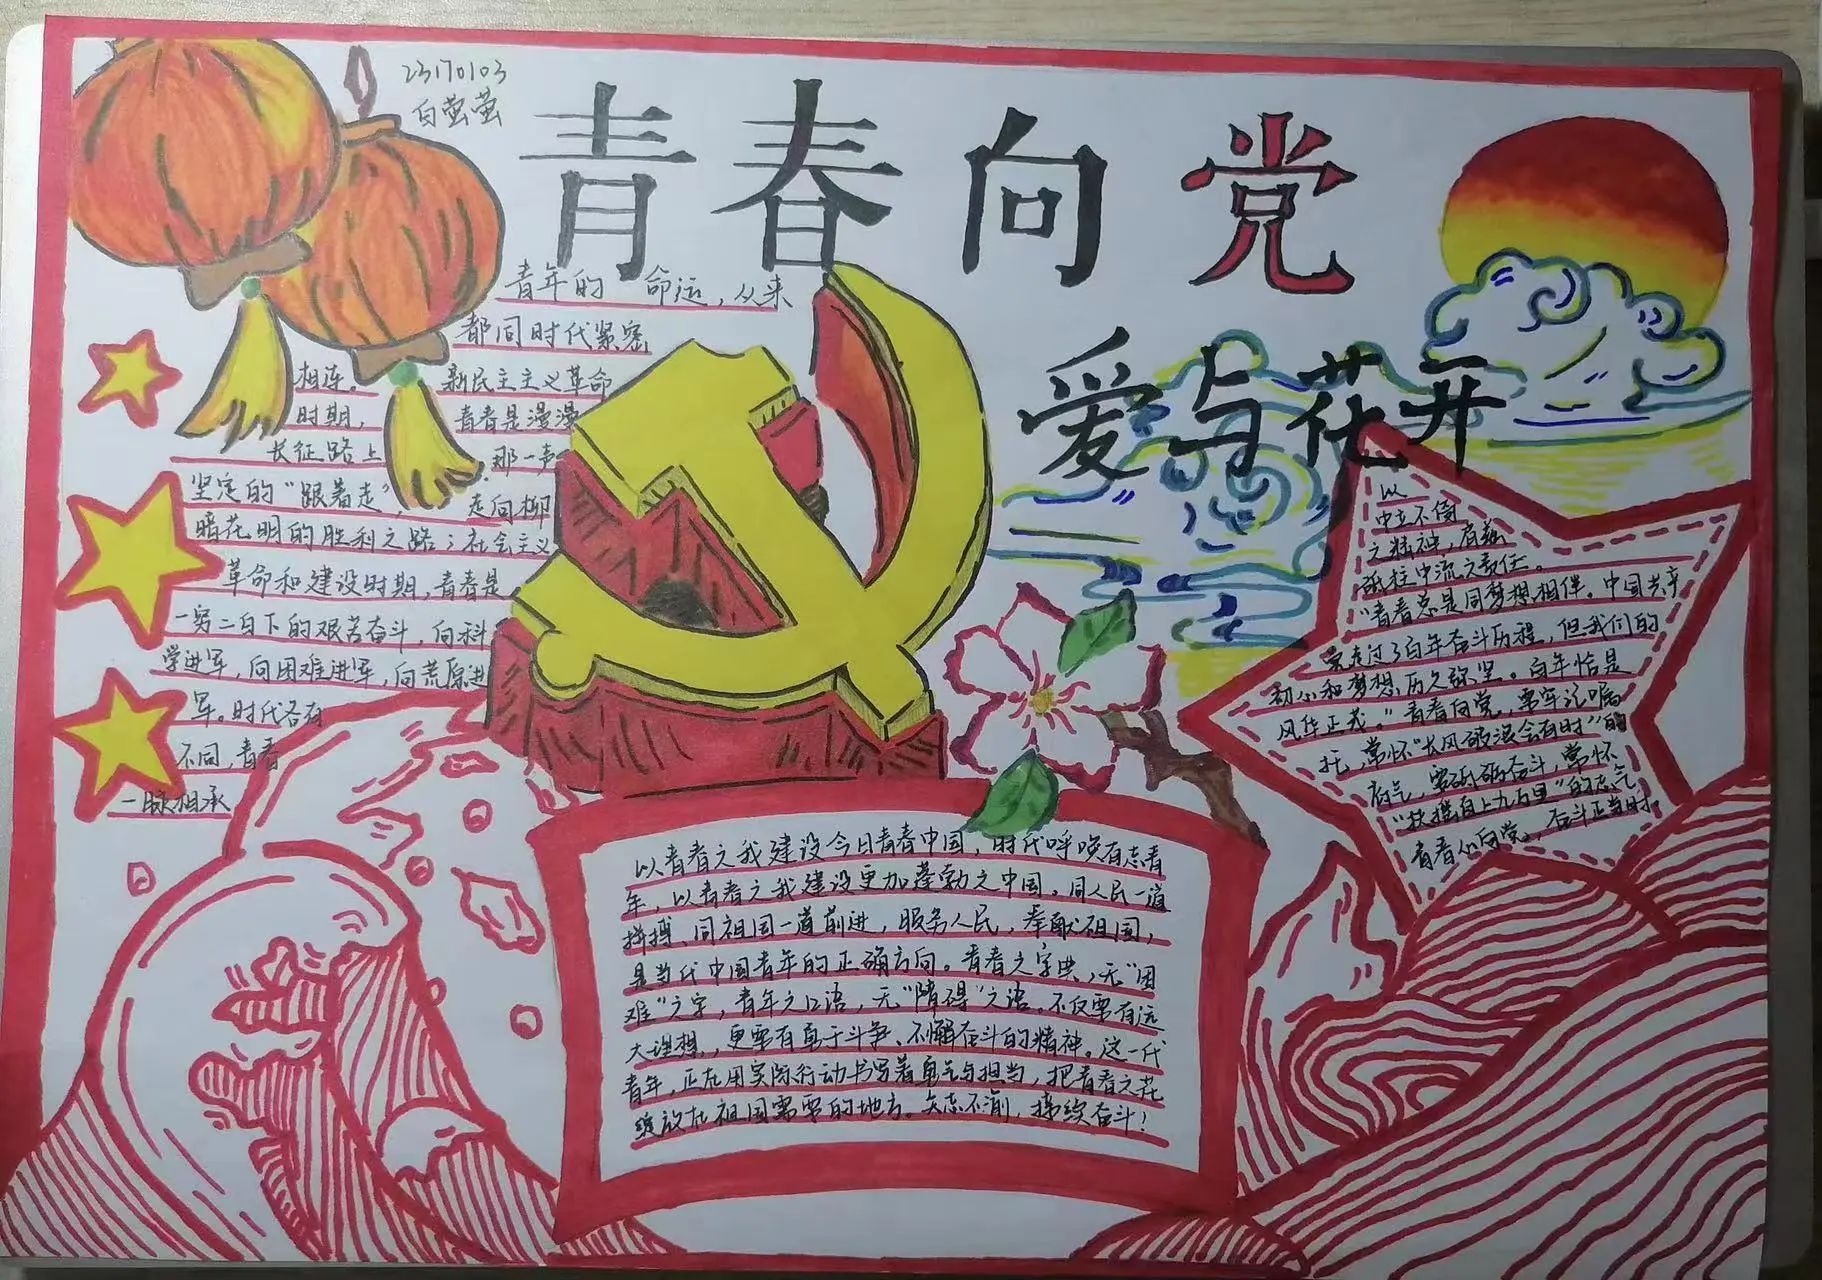 23170103
白萤萤
青春向党
爱与花开
青年的 命运，从来
都同时代紧密
相连。 新民主主义革命
时期， 青春是漫漫
长征路上 那一声
坚定的“跟着走”， 走向柳
暗花明的胜利之路；社会主义
革命和建设时期，青春是
一穷二白下的艰苦奋斗，向科
学进军，向困难进军，向荒原进
军。时代各有
不同，青春
一脉相承
以
中立不倚
之精神，肩
砥柱中流之责任。
“青春总是同梦想相伴。中国共产
党走过了百年奋斗历程，但我们的
初心和梦想历久弥坚。百年恰是
风华正茂。”青春向党，需牢记嘱
托，常怀“长风破浪会有时”的
底气，需砥砺奋斗，常怀
“扶摇直上九万里”的志气
青春心向党，奋斗正当时
以青春之我建设今日青春中国，时代呼唤有志青
年，以青春之我建设更加蓬勃之中国，同人民一道
拼搏、同祖国一道前进，服务人民，奉献祖国，
是当代中国青年的正确方向。青春之字典，无“困
难”之字，青年之口语，无“障碍”之语。不仅需有远
大理想，更需有勇于斗争、不懈奋斗的精神。这一代
青年，正在用实际行动书写着勇气与担当，把青春之花
绽放在祖国需要的地方。矢志不渝，接续奋斗！